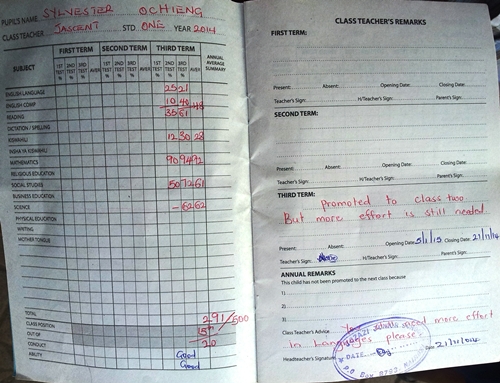 PUPIL'S NAME SYLVESTER OCHIENG
CLASS TEACHER JASCENT STD ONE YEAR 2014
SUBJECT FIRST TERM SECOND TERM THIRD TERM ANNUAL AVERAGE SUMMARY
1ST TEST % 2ND TEST % 3RD TEST % AVER 1ST TEST % 2ND TEST % 3RD TEST % AVER 1ST TEST % 2ND TEST % 3RD TEST % AVER
ENGLISH LANGUAGE 25 21
ENGLISH COMP 10 40 48
READING 35 61
DICTATION / SPELLING
KISWAHILI 12 30 28
INSHA YA KISWAHILI
MATHEMATICS 90 94 92
RELIGIOUS EDUCATION
SOCIAL STUDIES 50 72 61
BUSINESS EDUCATION
SCIENCE - 62 62
PHYSICAL EDUCATION
WRITING
MOTHER TONGUE
TOTAL 291/500
CLASS POSITION 15
OUT OF 20
CONDUCT Good
ABILITY Good
CLASS TEACHER'S REMARKS
FIRST TERM:
Present: Absent: Opening Date: Closing Date:
Teacher's Sign: H/Teacher's Sign: Parent's Sign:
SECOND TERM:
Present: Absent: Opening Date: Closing Date:
Teacher's Sign: H/Teacher's Sign: Parent's Sign:
THIRD TERM:
Promoted to class two
But more effort is still needed
Present: Absent: Opening Date: 5/1/15 Closing Date: 21/11/14
Teacher's Sign: H/Teacher's Sign: Parent's Sign:
ANNUAL REMARKS
This child has not been promoted to the next class because
1)
2)
3)
Class Teacher's Advice You need more effort
in Languages please.
Headteacher's Signature Date 21/11/2014
* DATE